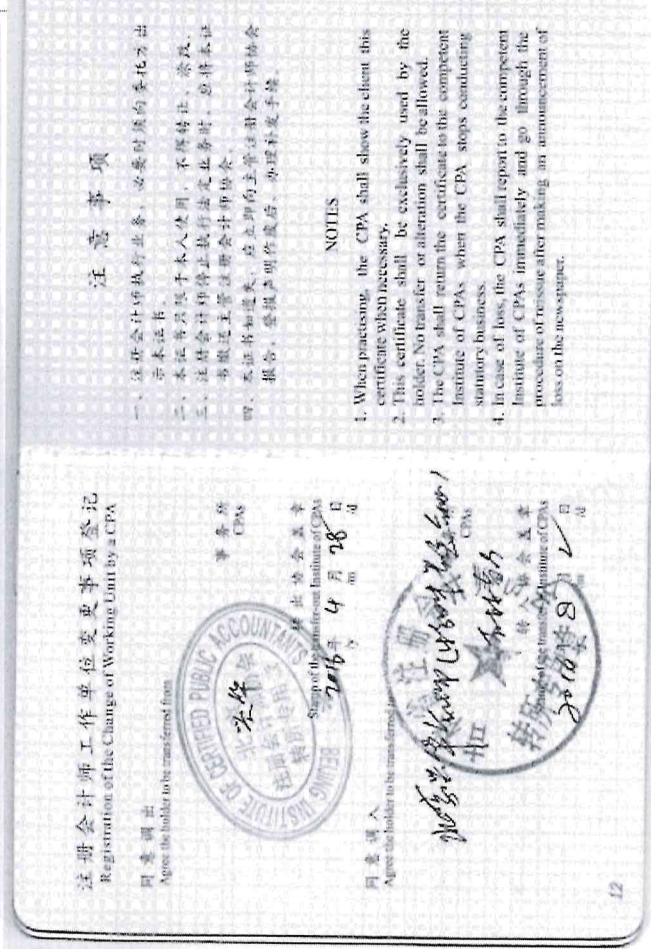 注册会计师工作单位变更事项登记
Registration of the Change of Working Unit by a CPA
同意调出
Agree the holder to be transferred from
事务所
CPAs
BEIJING INSTITUTE OF CERTIFIED PUBLIC ACCOUNTANTS
转出协会盖章
Stamp of the transfer-out Institute of CPAs
2016年 4月 28日
/y /m /d
同意调入
Agree the holder to be transferred to
CPAs
转入协会盖章
Stamp of the transfer-in Institute of CPAs
日
/d
12
注意事项
一、注册会计师执行业务，必要时须向委托方出
示本证书。
二、本证书只限于本人使用，不得转让、涂改。
三、注册会计师停止执行法定业务时，应将本证
书缴还主管注册会计师协会。
四、本证书如遗失，应立即向主管注册会计师协会
报告，登报声明作废后，办理补发手续。
NOTES
1. When practising, the CPA shall show the client this
certificate when necessary.
2. This certificate shall be exclusively used by the
holder. No transfer or alteration shall be allowed.
3. The CPA shall return the certificate to the competent
Institute of CPAs when the CPA stops conducting
statutory business.
4. In case of loss, the CPA shall report to the competent
Institute of CPAs immediately and go through the
procedure of reissue after making an announcement of
loss on the newspaper.